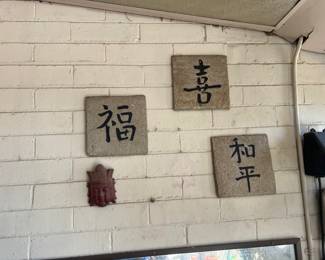 福
喜
和
平